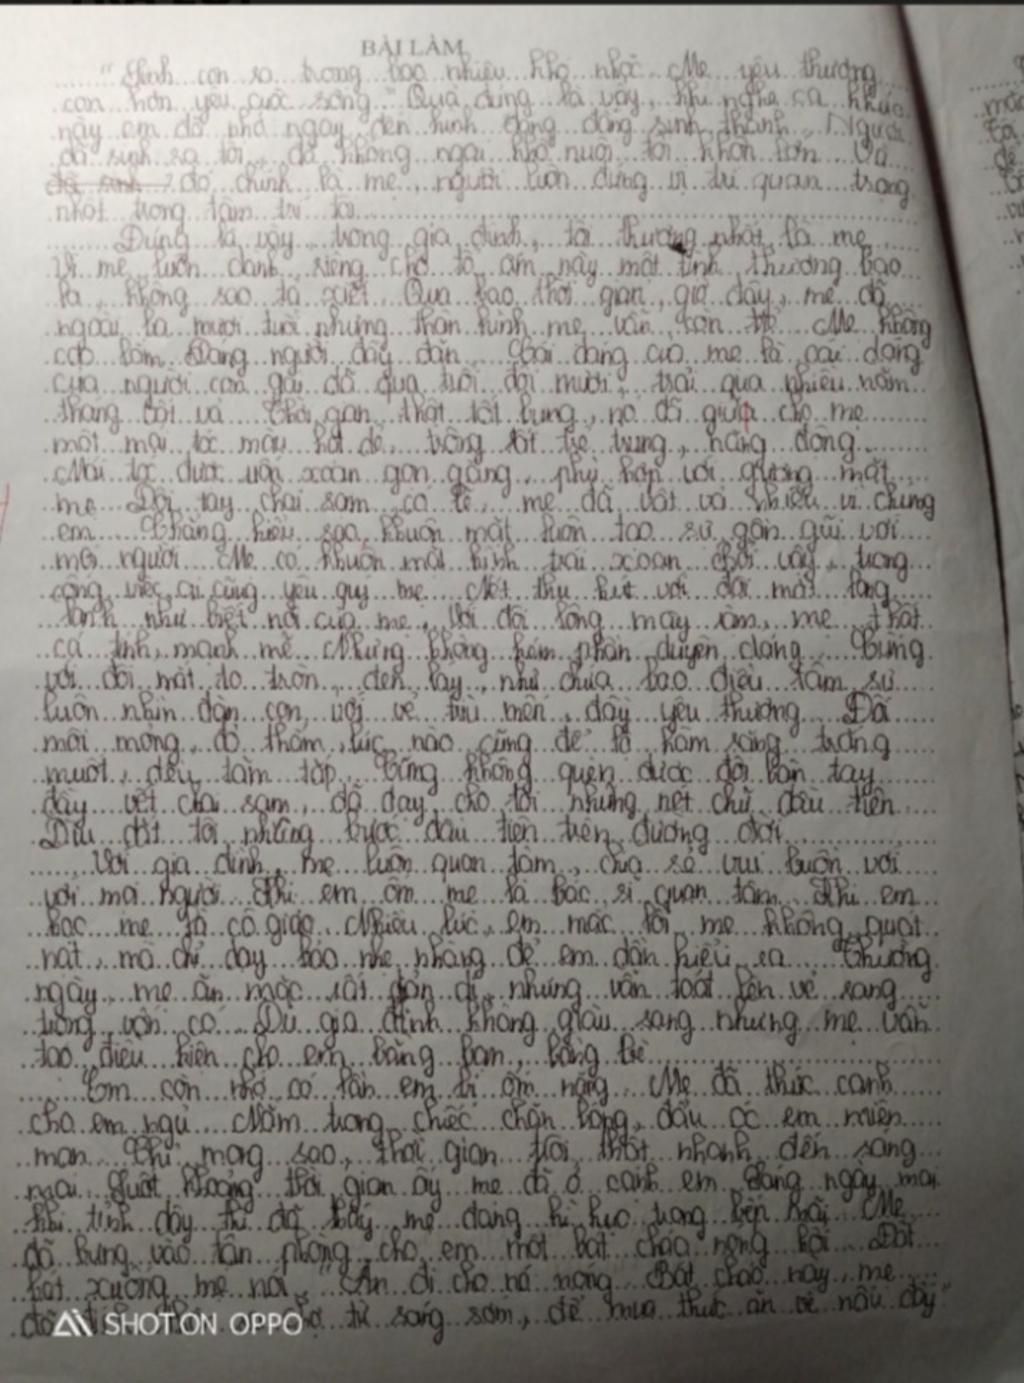 BÀI LÀM
"Sinh con ra trong bao nhiêu khó nhọc. Mẹ yêu thương
con hơn yêu cuộc sống" Quả đúng là vậy, khi nghe ca khúc
này em đã nhớ ngay đến hình dáng đấng sinh thành. Người
đã sinh ra tôi, đã không ngại khó nuôi tôi khôn lớn. Và
đó chính là mẹ, người luôn đứng vị trí quan trọng
nhất trong tâm trí tôi
Đúng là vậy, trong gia đình, tôi thương nhất là mẹ
Vì mẹ luôn dành riêng cho tổ ấm này một tình thương bao
la, không sao tả xiết. Qua bao thời gian, giờ đây, mẹ đã
ngoài ba mươi tuổi nhưng thân hình mẹ vẫn còn trẻ. Mẹ không
cao lắm. Dáng người đầy đặn. Cái dáng của mẹ là cái dáng
của người con gái đã qua tuổi đôi mươi, trải qua nhiều năm
tháng vất vả. Thời gian thật tốt bụng, nó đã giữ cho mẹ
một mái tóc màu hạt dẻ, trông rất trẻ trung, năng động
Mái tóc được uốn xoăn gọn gàng, phù hợp với gương mặt
mẹ. Đôi tay chai sạm có lẽ, mẹ đã vất vả nhiều vì chúng
em. Chẳng hiểu sao, khuôn mặt luôn tạo sự gần gũi với
mọi người. Mẹ có khuôn mặt hình trái xoan. Bởi vậy, trong
công việc, ai cũng yêu quý mẹ. Nét thu hút với đôi mắt long
lanh như biết nói của mẹ. Với đôi lông mày rậm, mẹ thật
cá tính, mạnh mẽ. Nhưng không kém phần duyên dáng. Cùng
với đôi mắt to tròn, đen láy, như chứa bao điều tâm sự
luôn nhìn đàn con, với vẻ trìu mến, đầy yêu thương. Đôi
môi mỏng, đỏ thắm, lúc nào cũng để lộ hàm răng trắng
muốt, đều tăm tắp. Cũng không quên được đôi bàn tay
đầy vết chai sạm, đã dạy cho tôi những nét chữ đầu tiên
Dìu dắt tôi những bước đầu tiên trên đường đời
Với gia đình, mẹ luôn quan tâm, chia sẻ vui buồn với
với mọi người. Khi em ốm mẹ là bác sĩ quan tâm. Khi em
học mẹ là cô giáo. Nhiều lúc, em mắc lỗi mẹ không quát
nạt, mà chỉ dạy bảo nhẹ nhàng để em dần hiểu ra. Thường
ngày, mẹ ăn mặc rất giản dị, nhưng vẫn toát lên vẻ sang
trọng vốn có. Dù gia đình không giàu sang nhưng mẹ vẫn
tạo điều kiện cho em bằng bạn, bằng bè
Em còn nhớ có lần em bị ốm nặng. Mẹ đã thức canh
cho em ngủ. Nằm trong chiếc chăn bông, đầu óc em miên
man. Chỉ mong sao, thời gian trôi thật nhanh đến sáng
mai. Suốt khoảng thời gian ấy mẹ đã ở cạnh em. Sáng ngày mai
khi tỉnh dậy thì đã thấy mẹ đang hì hục trong bếp Mẹ
đã bưng vào tận phòng cho em một bát cháo nóng hổi. Đặt
bát xuống mẹ nói "Ăn đi cho nó nóng. Bát cháo này mẹ
đã chợ từ sáng sớm, để mua thức ăn về nấu đấy"
SHOT ON OPPO